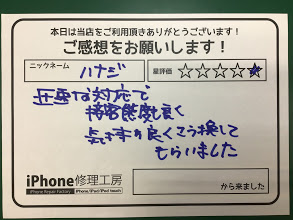 本日は当店をご利用頂きありがとうございます!
ご感想をお願いします!
ニックネーム
ハナジ
星評価
☆☆☆☆★
な対応で
接客態度も良く
良くこう換して
もらいました
iPhone修理工房
iPhone Repair Factory
iPhone/iPad/iPod touch
から来ました